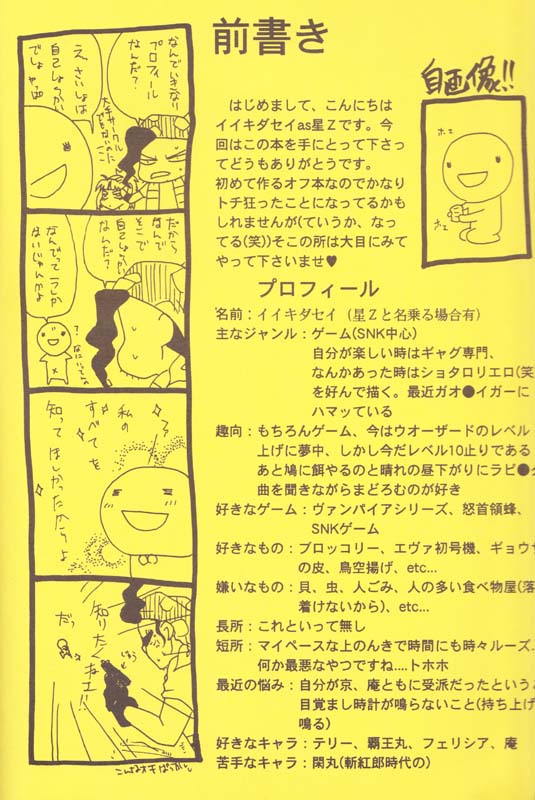 前書き
自画像!!
ホエ
ホエ
はじめまして、こんにちは
イイキダセイas星Zです。今
回はこの本を手にとって下さっ
てどうもありがとうです。
初めて作るオフ本なのでかなり
トチ狂ったことになってるかも
しれませんが(ていうか、なっ
てる(笑))そこの所は大目にみて
やって下さいませ♥
プロフィール
名前：イイキダセイ（星Zと名乗る場合有）
主なジャンル：ゲーム(SNK中心)
自分が楽しい時はギャグ専門、
なんかあった時はショタロリエロ(笑
を好んで描く。最近ガオ●イガーに
ハマッている
趣向：もちろんゲーム、今はウオーザードのレベル
上げに夢中、しかし今だレベル10止りである
あと鳩に餌やるのと晴れの昼下がりにラピ●
曲を聞きながらまどろむのが好き
好きなゲーム：ヴァンパイアシリーズ、怒首領蜂、
SNKゲーム
好きなもの：ブロッコリー、エヴァ初号機、ギョウ
の皮、鳥空揚げ、etc...
嫌いなもの：貝、虫、人ごみ、人の多い食べ物屋(落
着けないから)、etc...
長所：これといって無し
短所：マイペースな上のんきで時間にも時々ルーズ..
何か最悪なやつですね....トホホ
最近の悩み：自分が京、庵ともに受派だったという
目覚まし時計が鳴らないこと(持ち上げ
鳴る)
好きなキャラ：テリー、覇王丸、フェリシア、庵
苦手なキャラ：閑丸(斬紅郎時代の)
なんでいきなり
プロフィール
なんだ？
え、さいしょは
自己しょうかい
でしょやっぱ
だから
なんで
そこで
自己しょうかい
なんだ？
なんでって
ないじゃんかよ
？
私の
すべてを
知って
ほしかったからよ
知りたく
ねエ!!
だっ
こんなオチばっかし